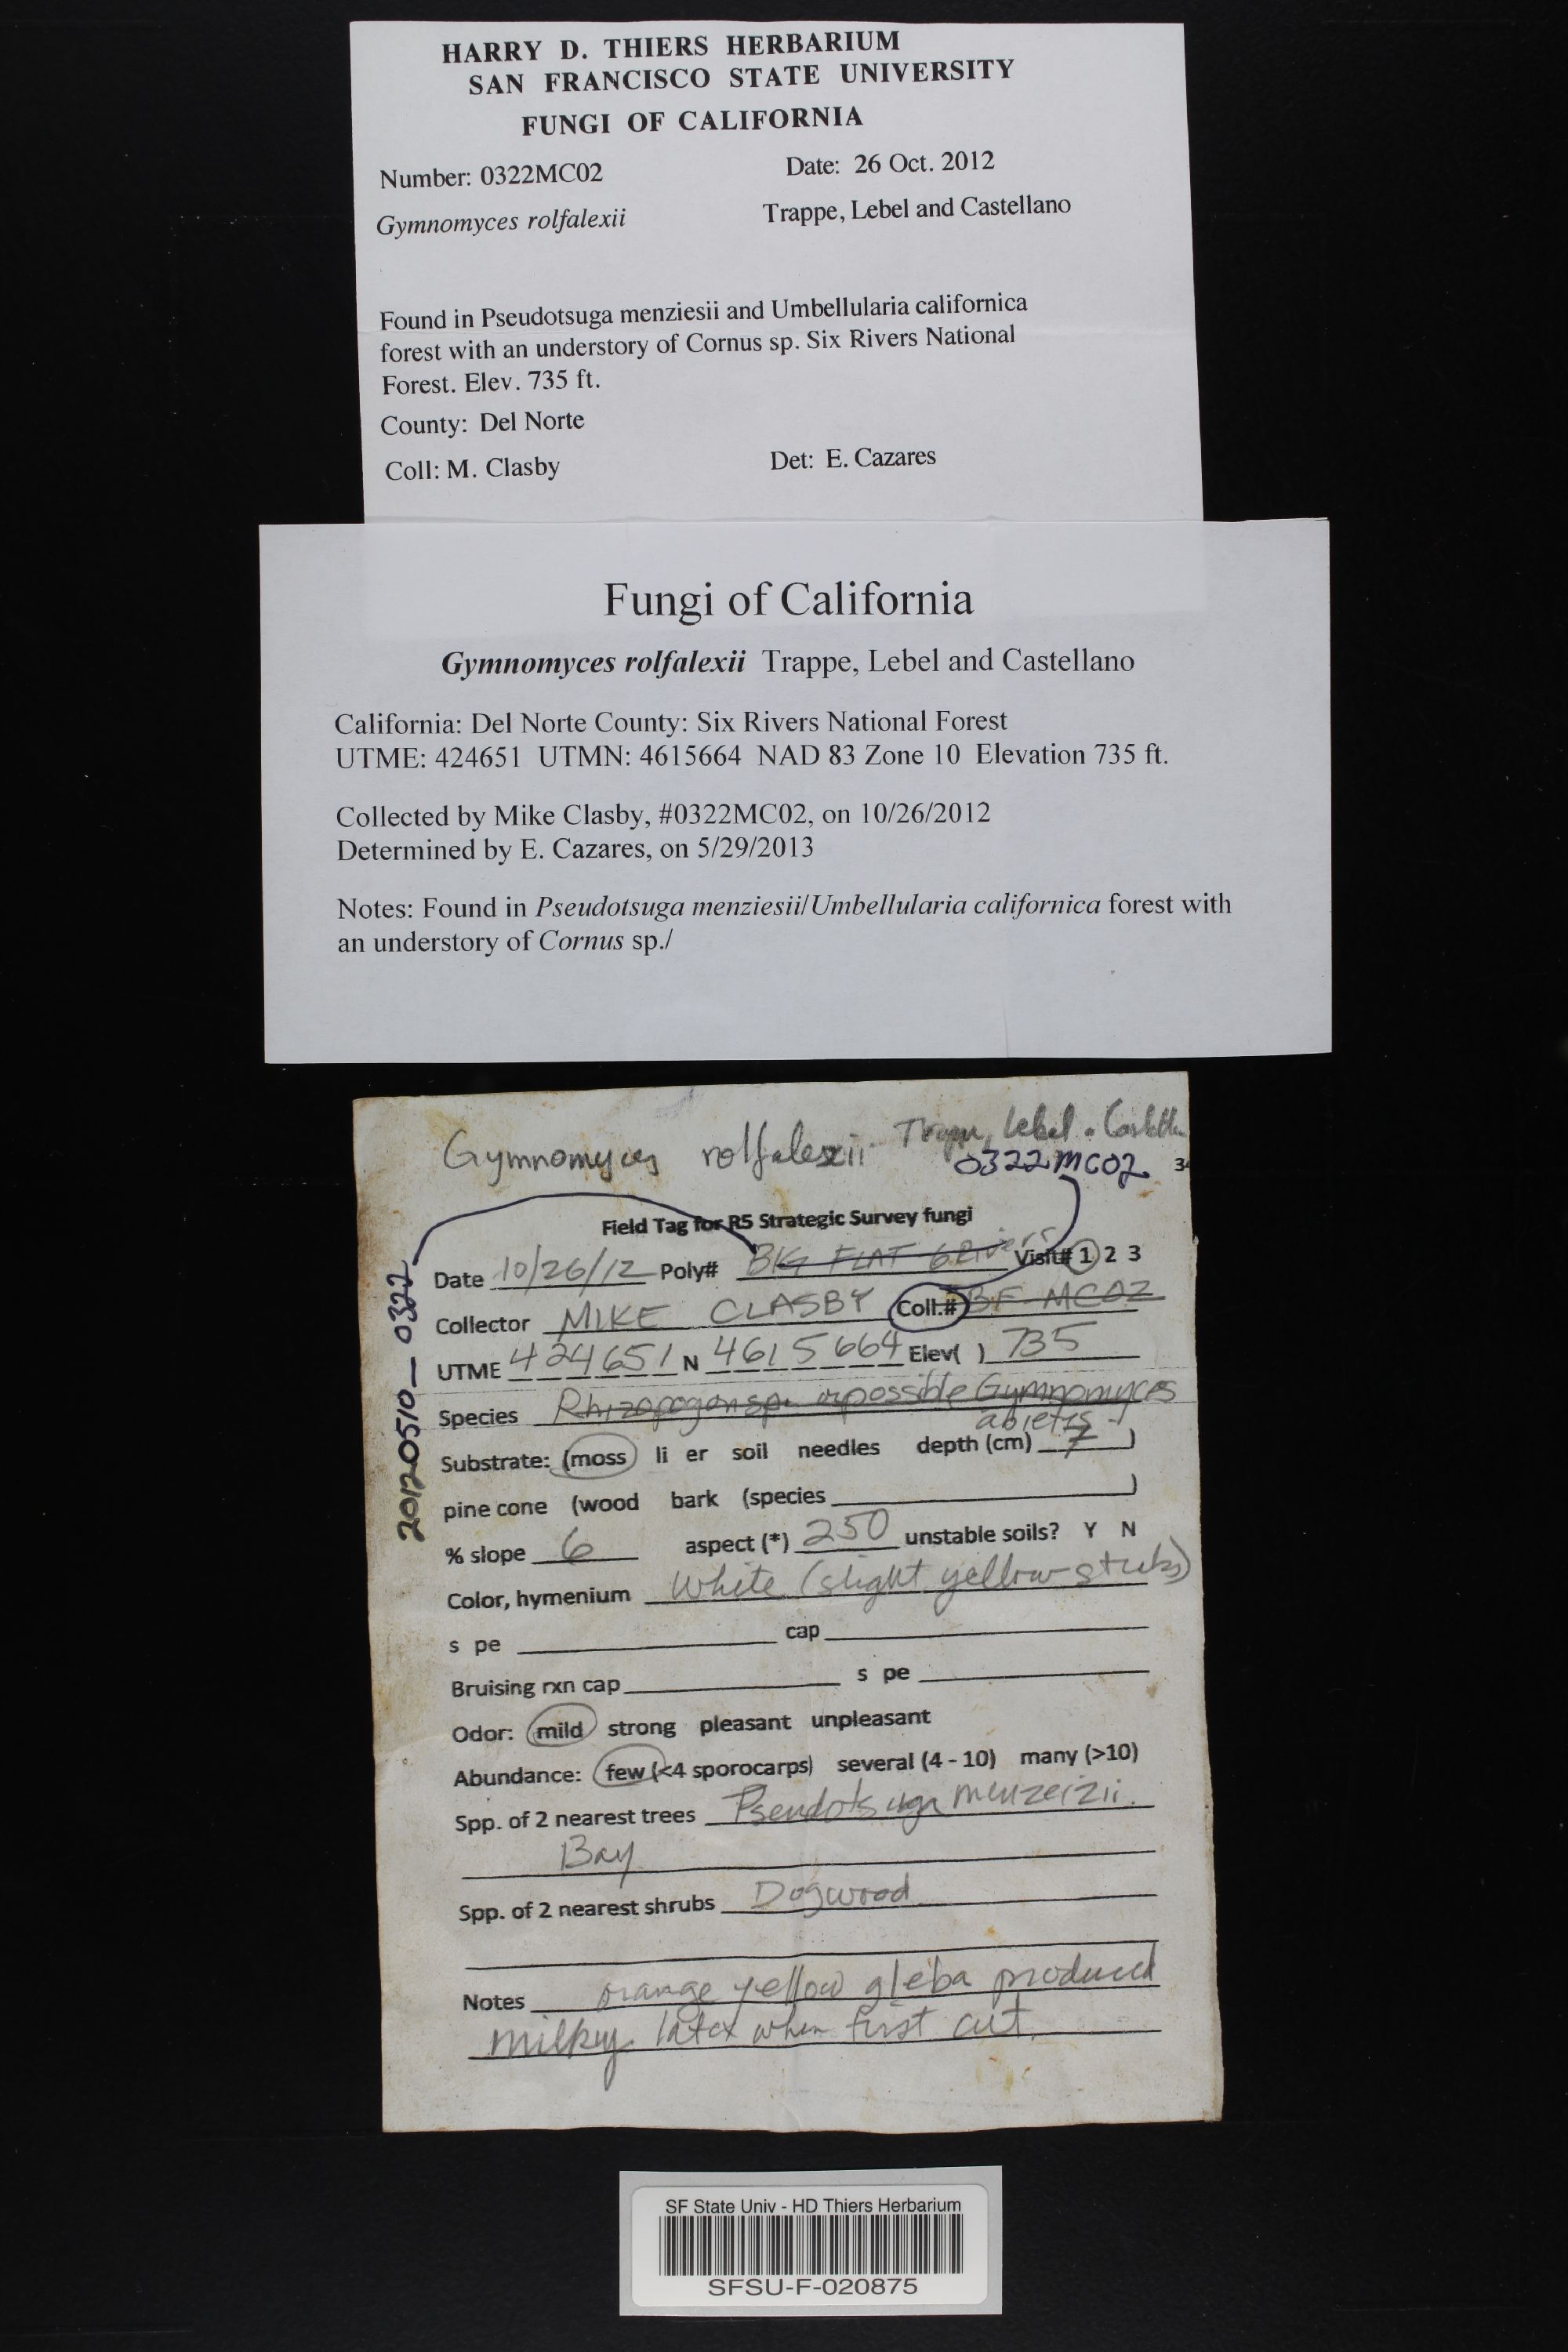 HARRY D. THIERS HERBARIUM
SAN FRANCISCO STATE UNIVERSITY
FUNGI OF CALIFORNIA
Number: 0322MC02 Date: 26 Oct. 2012
Gymnomyces rolfalexii Trappe, Lebel and Castellano
Found in Pseudotsuga menziesii and Umbellularia californica
forest with an understory of Cornus sp. Six Rivers National
Forest. Elev. 735 ft.
County: Del Norte
Coll: M. Clasby Det: E. Cazares
Fungi of California
Gymnomyces rolfalexii Trappe, Lebel and Castellano
California: Del Norte County: Six Rivers National Forest
UTME: 424651 UTMN: 4615664 NAD 83 Zone 10 Elevation 735 ft.
Collected by Mike Clasby, #0322MC02, on 10/26/2012
Determined by E. Cazares, on 5/29/2013
Notes: Found in Pseudotsuga menziesii/Umbellularia californica forest with
an understory of Cornus sp./
Gymnomyces rolfalexii Trappe, Lebel
0322MC02
Field Tag for R5 Strategic Survey fungi
Date 10/26/12 Poly# BIG FLAT 6 Rivers Visit# 1 2 3
Collector MIKE CLASBY Coll.# BF-MC02
UTME 424651 N 4615664 Elev( ) 735
Species Rhizopogon sp. or possible Gymnomyces
abietis
Substrate: (moss li er soil needles depth (cm) 7 )
pine cone (wood bark (species )
% slope 6 aspect (*) 250 unstable soils? Y N
Color, hymenium White (slight yellow
s pe cap
Bruising rxn cap s pe
Odor: mild strong pleasant unpleasant
Abundance: few (<4 sporocarps) several (4 - 10) many (>10)
Spp. of 2 nearest trees Pseudotsuga menzeizii.
Bay
Spp. of 2 nearest shrubs Dogwood
Notes orange yellow gleba produced
milky latex when first cut.
20120510-0322
SF State Univ - HD Thiers Herbarium
SFSU-F-020875